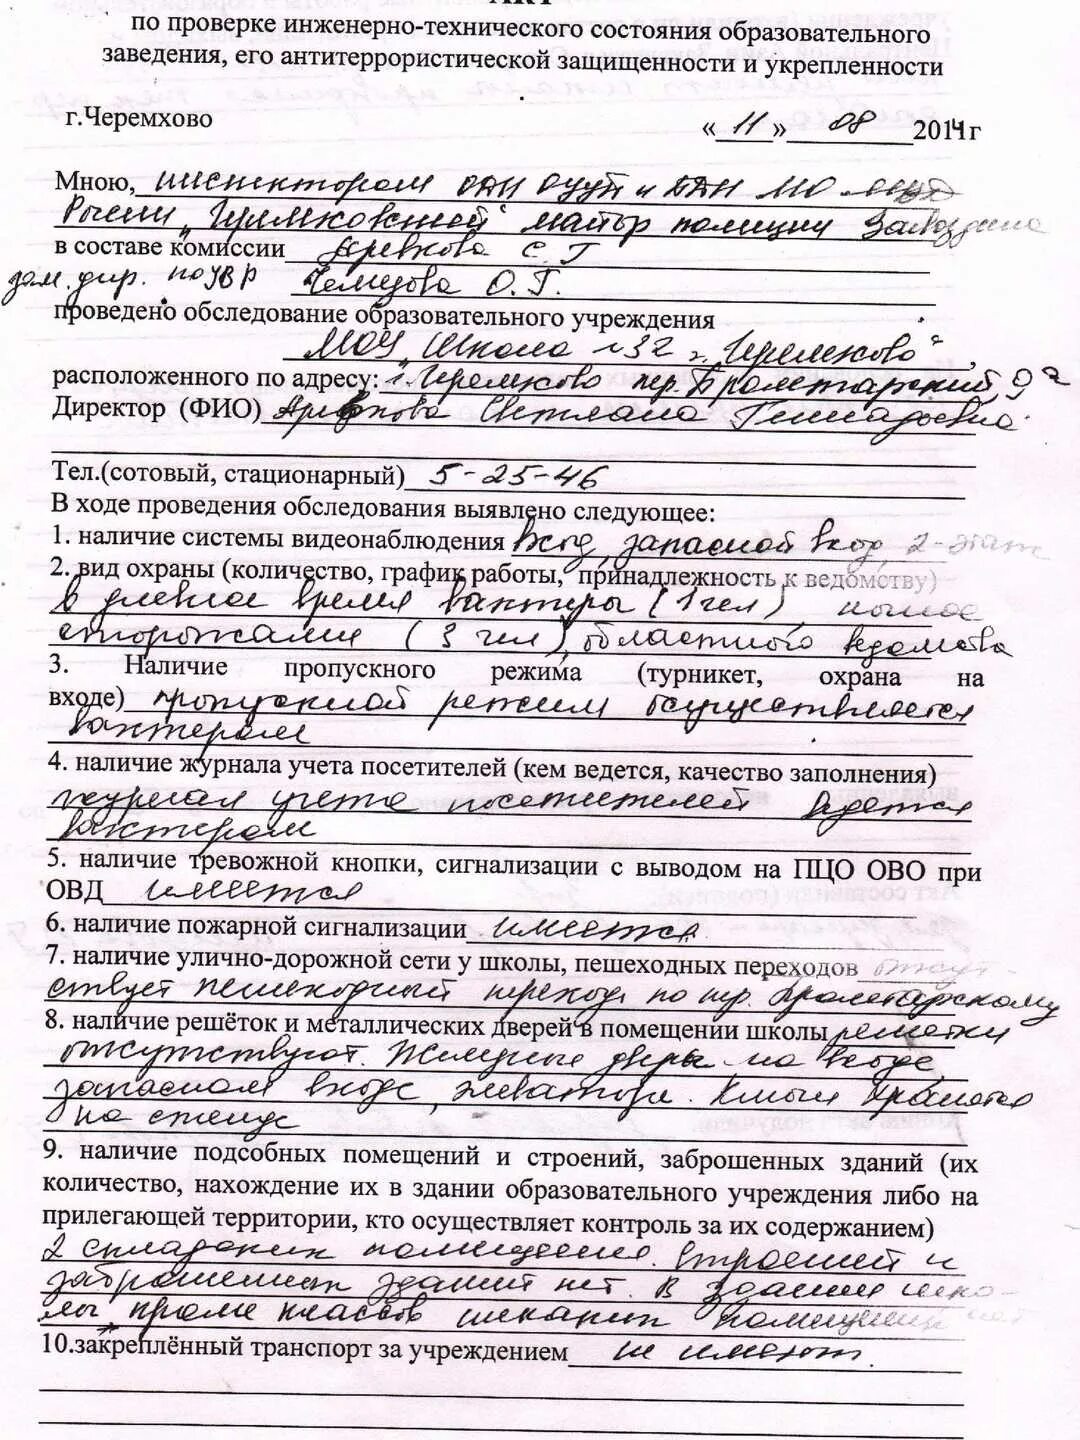 АКТ
по проверке инженерно-технического состояния образовательного
заведения, его антитеррористической защищенности и укрепленности
г.Черемхово
« 11 » 08 2014г
Мною, инспектором ОДН ОУУП и ПДН МО МВД
России „Черемховский“ майор полиции
в составе комиссии С. Г
зам. дир. по УВР Чемезова О. Г.
проведено обследование образовательного учреждения
МОУ „Школа №32 г. Черемхово“,
расположенного по адресу: г. Черемхово пер. Пролетарский, 9а
Директор (ФИО) Светлана Геннадьевна
Тел.(сотовый, стационарный) 5-25-46
В ходе проведения обследования выявлено следующее:
1. наличие системы видеонаблюдения вход, запасной вход, 2-этаж
2. вид охраны (количество, график работы, принадлежность к ведомству)
в дневное время вахтеры (1 чел), ночное
сторожами (3 чел), областного ведомства
3. Наличие пропускного режима (турникет, охрана на
входе) пропускной режим осуществляется
вахтером
4. наличие журнала учета посетителей (кем ведется, качество заполнения)
журнал учета посетителей ведется
вахтером
5. наличие тревожной кнопки, сигнализации с выводом на ПЦО ОВО при
ОВД имеется
6. наличие пожарной сигнализации имеется
7. наличие улично-дорожной сети у школы, пешеходных переходов отсут-
ствует пешеходный переход по пер. Пролетарскому
8. наличие решёток и металлических дверей в помещении школы решетки
отсутствуют. Железные двери на входе
запасном входе, . Ключи хранятся
на стенде
9. наличие подсобных помещений и строений, заброшенных зданий (их
количество, нахождение их в здании образовательного учреждения либо на
прилегающей территории, кто осуществляет контроль за их содержанием)
2 складских помещения. Строений и
заброшенных зданий нет. В здании шко-
лы, кроме классов никаких помещений нет
10.закреплённый транспорт за учреждением не имеют.